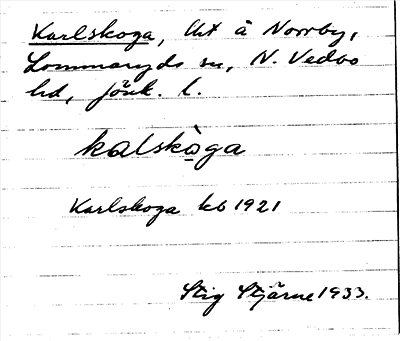 Karlskoga, lht å Norrby,
Lommaryds sn, N. Vedbo
hd, Jönk. l.
kalskòga
Karlskoga kb 1921
Stig Stjärne 1933.